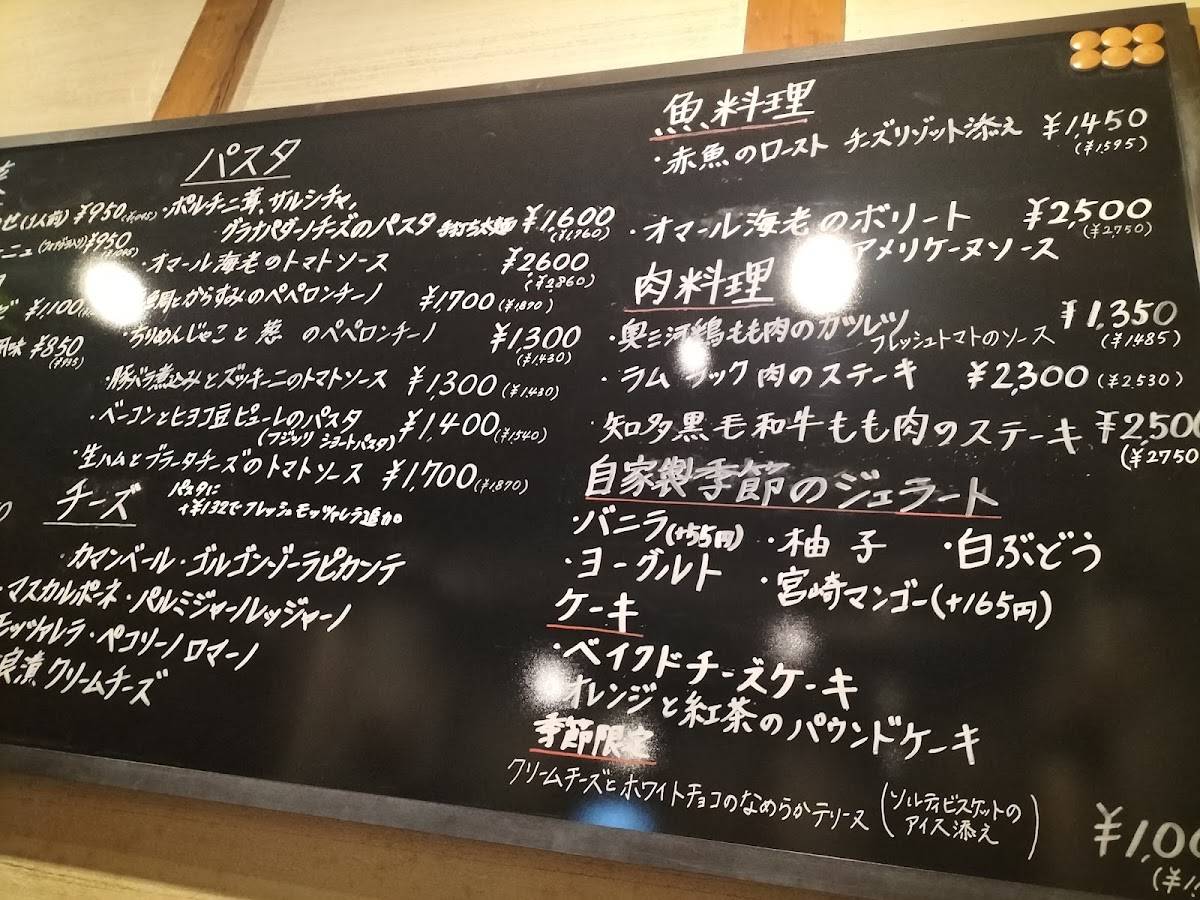 パスタ
ゼ(1人前) ¥950
ニュ ¥950
¥1,100
風味 ¥850
・ポルチーニ茸、サルシチャ、
グラナパダーノチーズのパスタ 手打ち太麺 ¥1,600
(¥1,760)
・オマール海老のトマトソース ¥2600
(¥2860)
からすみのペペロンチーノ ¥1700 (¥1,870)
・ちりめんじゃこと 葱 のペペロンチーノ ¥1,300
(¥1,430)
・豚バラ煮込みとズッキーニのトマトソース ¥1,300 (¥1,430)
・ベーコンとヒヨコ豆ピューレのパスタ ¥1,400
(フジッリ ショートパスタ) (¥1540)
・生ハムとブラータチーズのトマトソース ¥1,700 (¥1,870)
チーズ
パスタに
+¥132でフレッシュモッツァレラ追加
・カマンベール・ゴルゴンゾーラピカンテ
・マスカルポーネ・パルミジャーノレッジャーノ
モッツァレラ・ペコリーノロマーノ
良漬クリームチーズ
魚料理
・赤魚のロースト チーズリゾット添え ¥1,450
(¥1,595)
・オマール海老のボリート ¥2,500
(¥2,750)
アメリケーヌソース
肉料理
・奥三河鶏もも肉のカツレツ ¥1,350
フレッシュトマトのソース (¥1,485)
・ラム ラック肉のステーキ ¥2,300 (¥2,530)
・知多黒毛和牛もも肉のステーキ ¥2,500
(¥2750
自家製季節のジェラート
・バニラ(+55円) ・柚子 ・白ぶどう
・ヨーグルト ・宮崎マンゴー(+165円)
ケーキ
・ベイクドチーズケーキ
オレンジと紅茶のパウンドケーキ
季節限定
クリームチーズとホワイトチョコのなめらかテリーヌ (ソルティビスケットの
アイス添え)